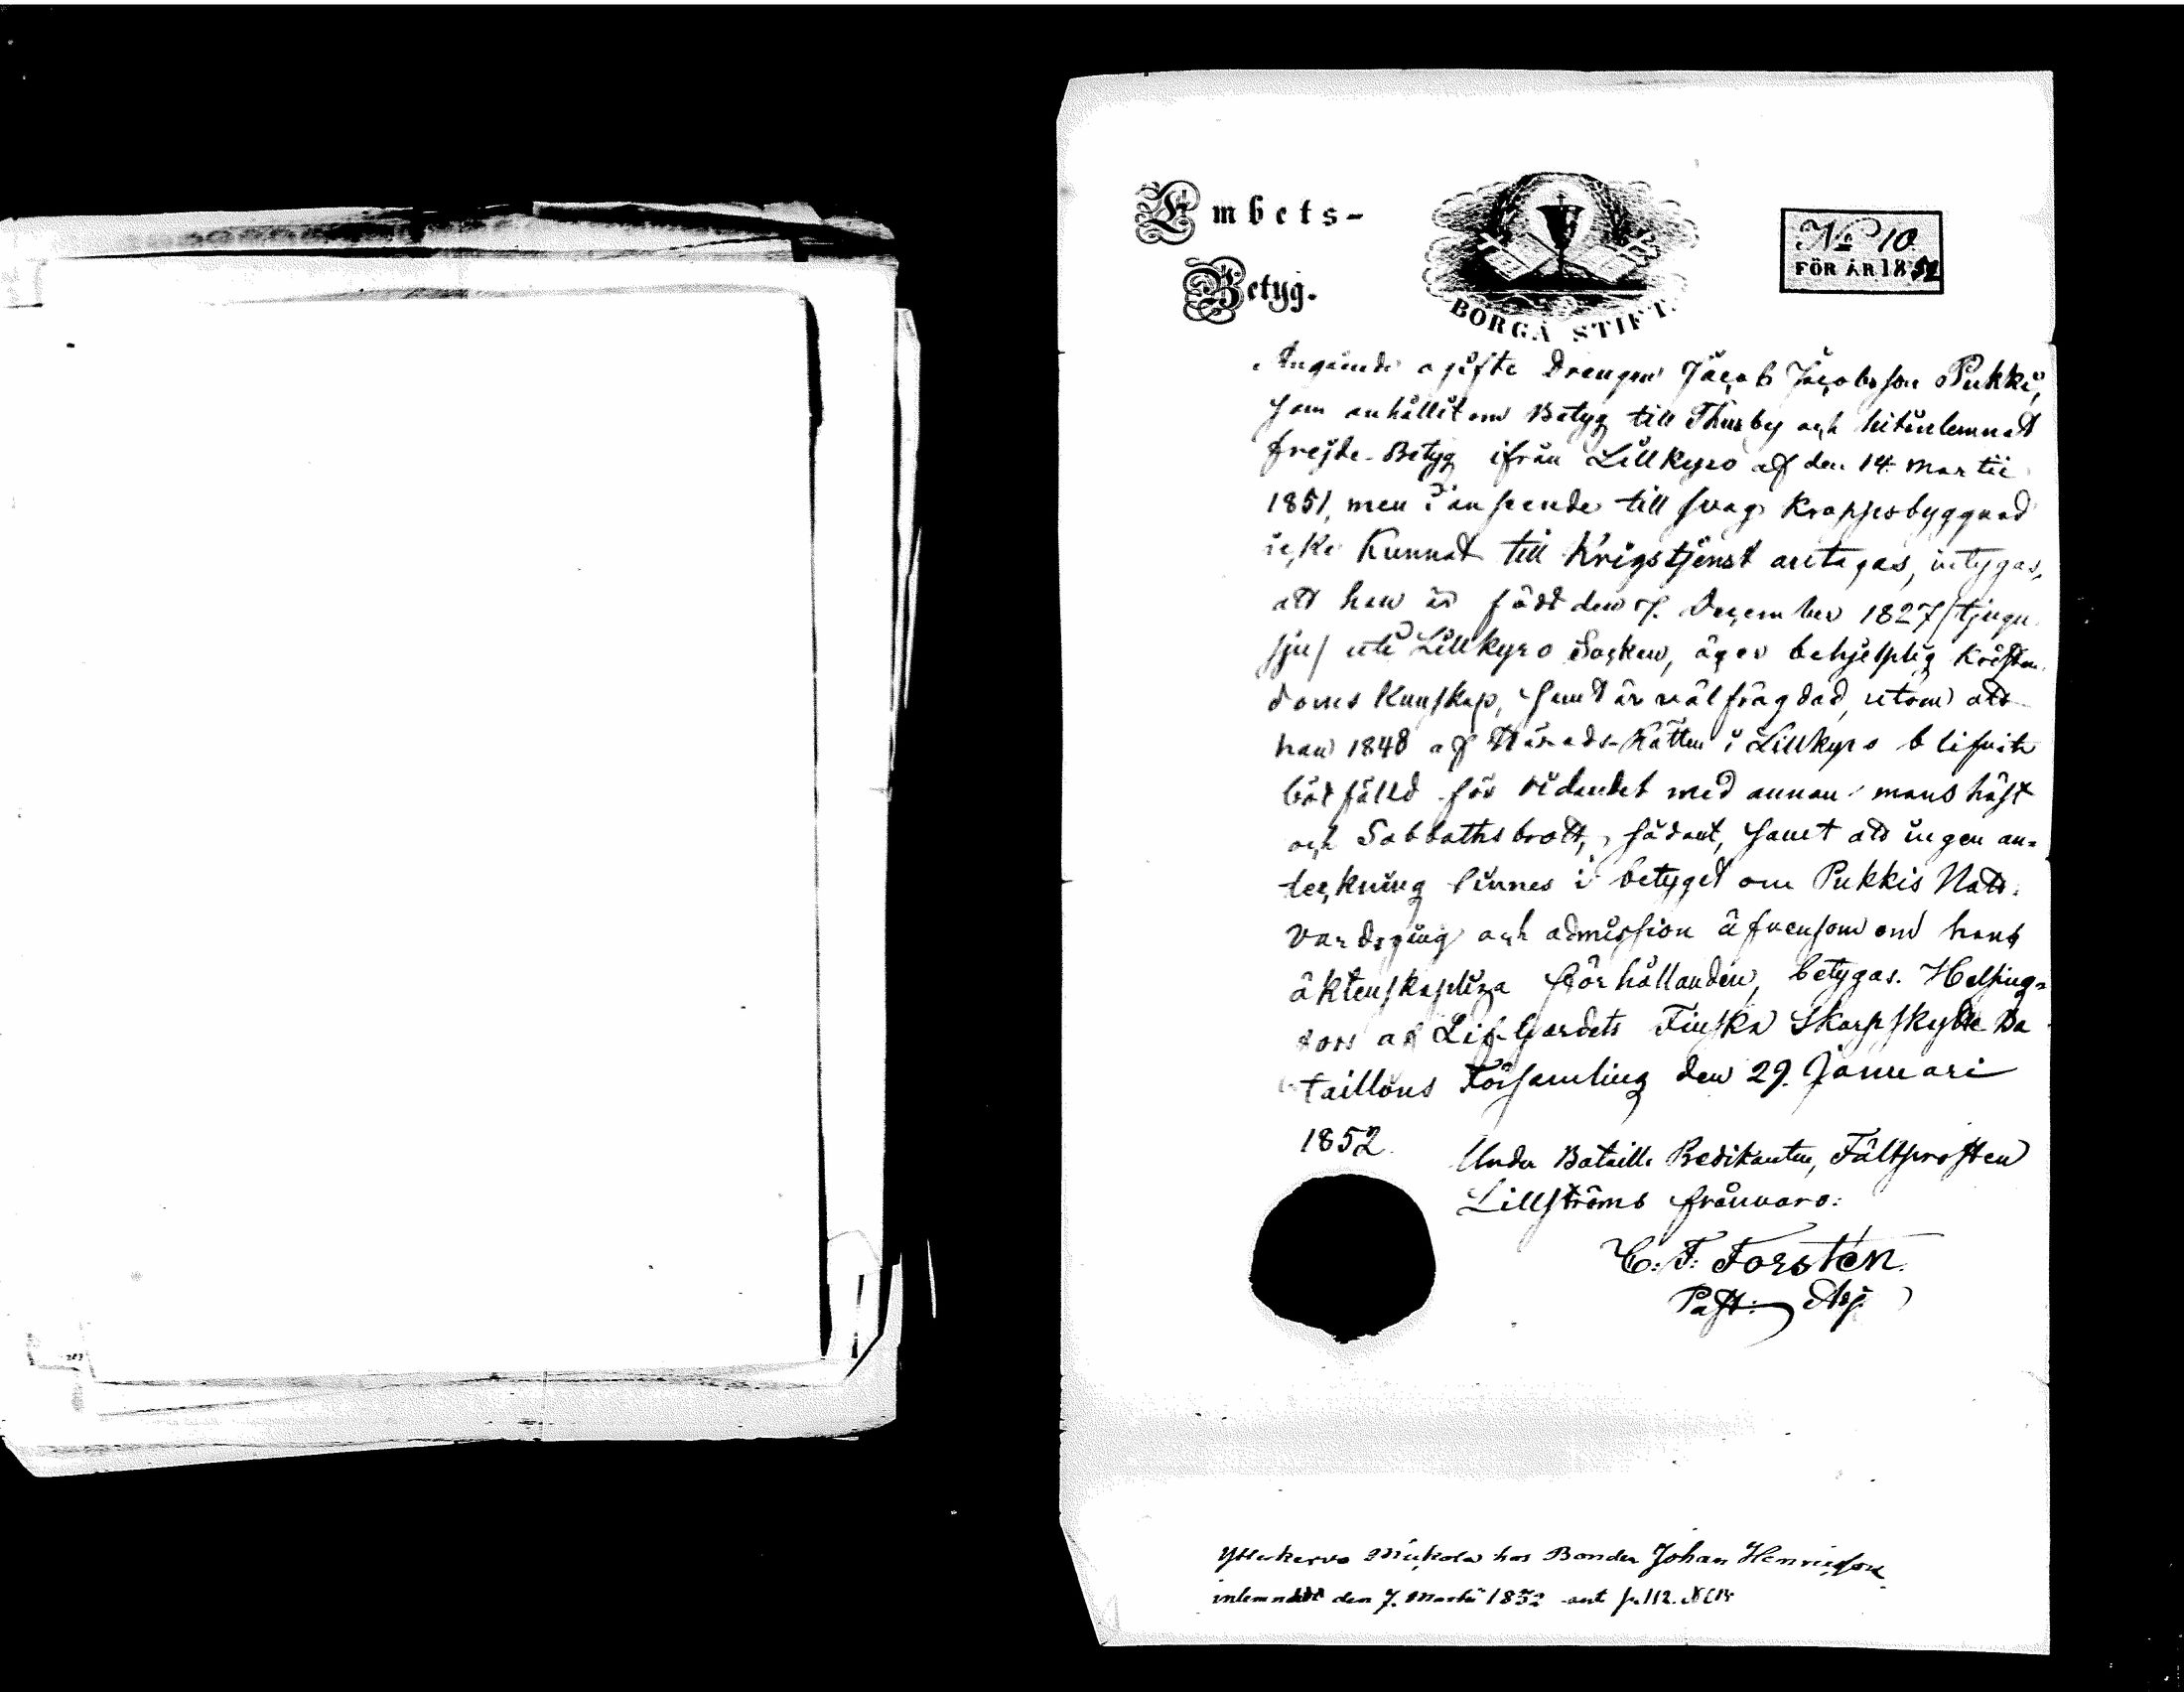 Embets-
Betyg.
BORGÅ STIFT.
No 10
FÖR ÅR 1852
Angående ogifte Drengen Jacob Jacobsson Pukki,
som anhållit om Betyg till Thusby och hit inlemnat
frejde-Betyg ifrån Lillkyro af den 14 Martii
1851, men i anseende till svag kroppsbyggnad
icke kunnat till Krigstjenst antagas, intygas,
att han är född den 7. December 1827 /tjugu
sju/ uti Lillkyro Socken, äger behjelplig Kristen
doms Kunskap, samt är välfrägdad, utom att
han 1848 af Härads-Rätten i Lillkyro blifvit
bötfälld för ridandet med annan mans häst
och Sabbathsbrott, sådant, samt att ingen an-
teckning finnes i betyget om Pukkis Natt-
vardsgång och admission äfvensom om hans
äktenskapliga förhållanden, betygas. Helsing-
fors af Lif-Gardets Finska Skarpskytte Ba
taillons Församling den 29. Januari
1852.
Under Bataill. Predikanten, Fältprosten
Lillströms frånvaro:
C. F. Forstén.
Past: Adj.
Mickola hos Bonden Johan Henricsson
inlemnadt den 7. Martii 1852